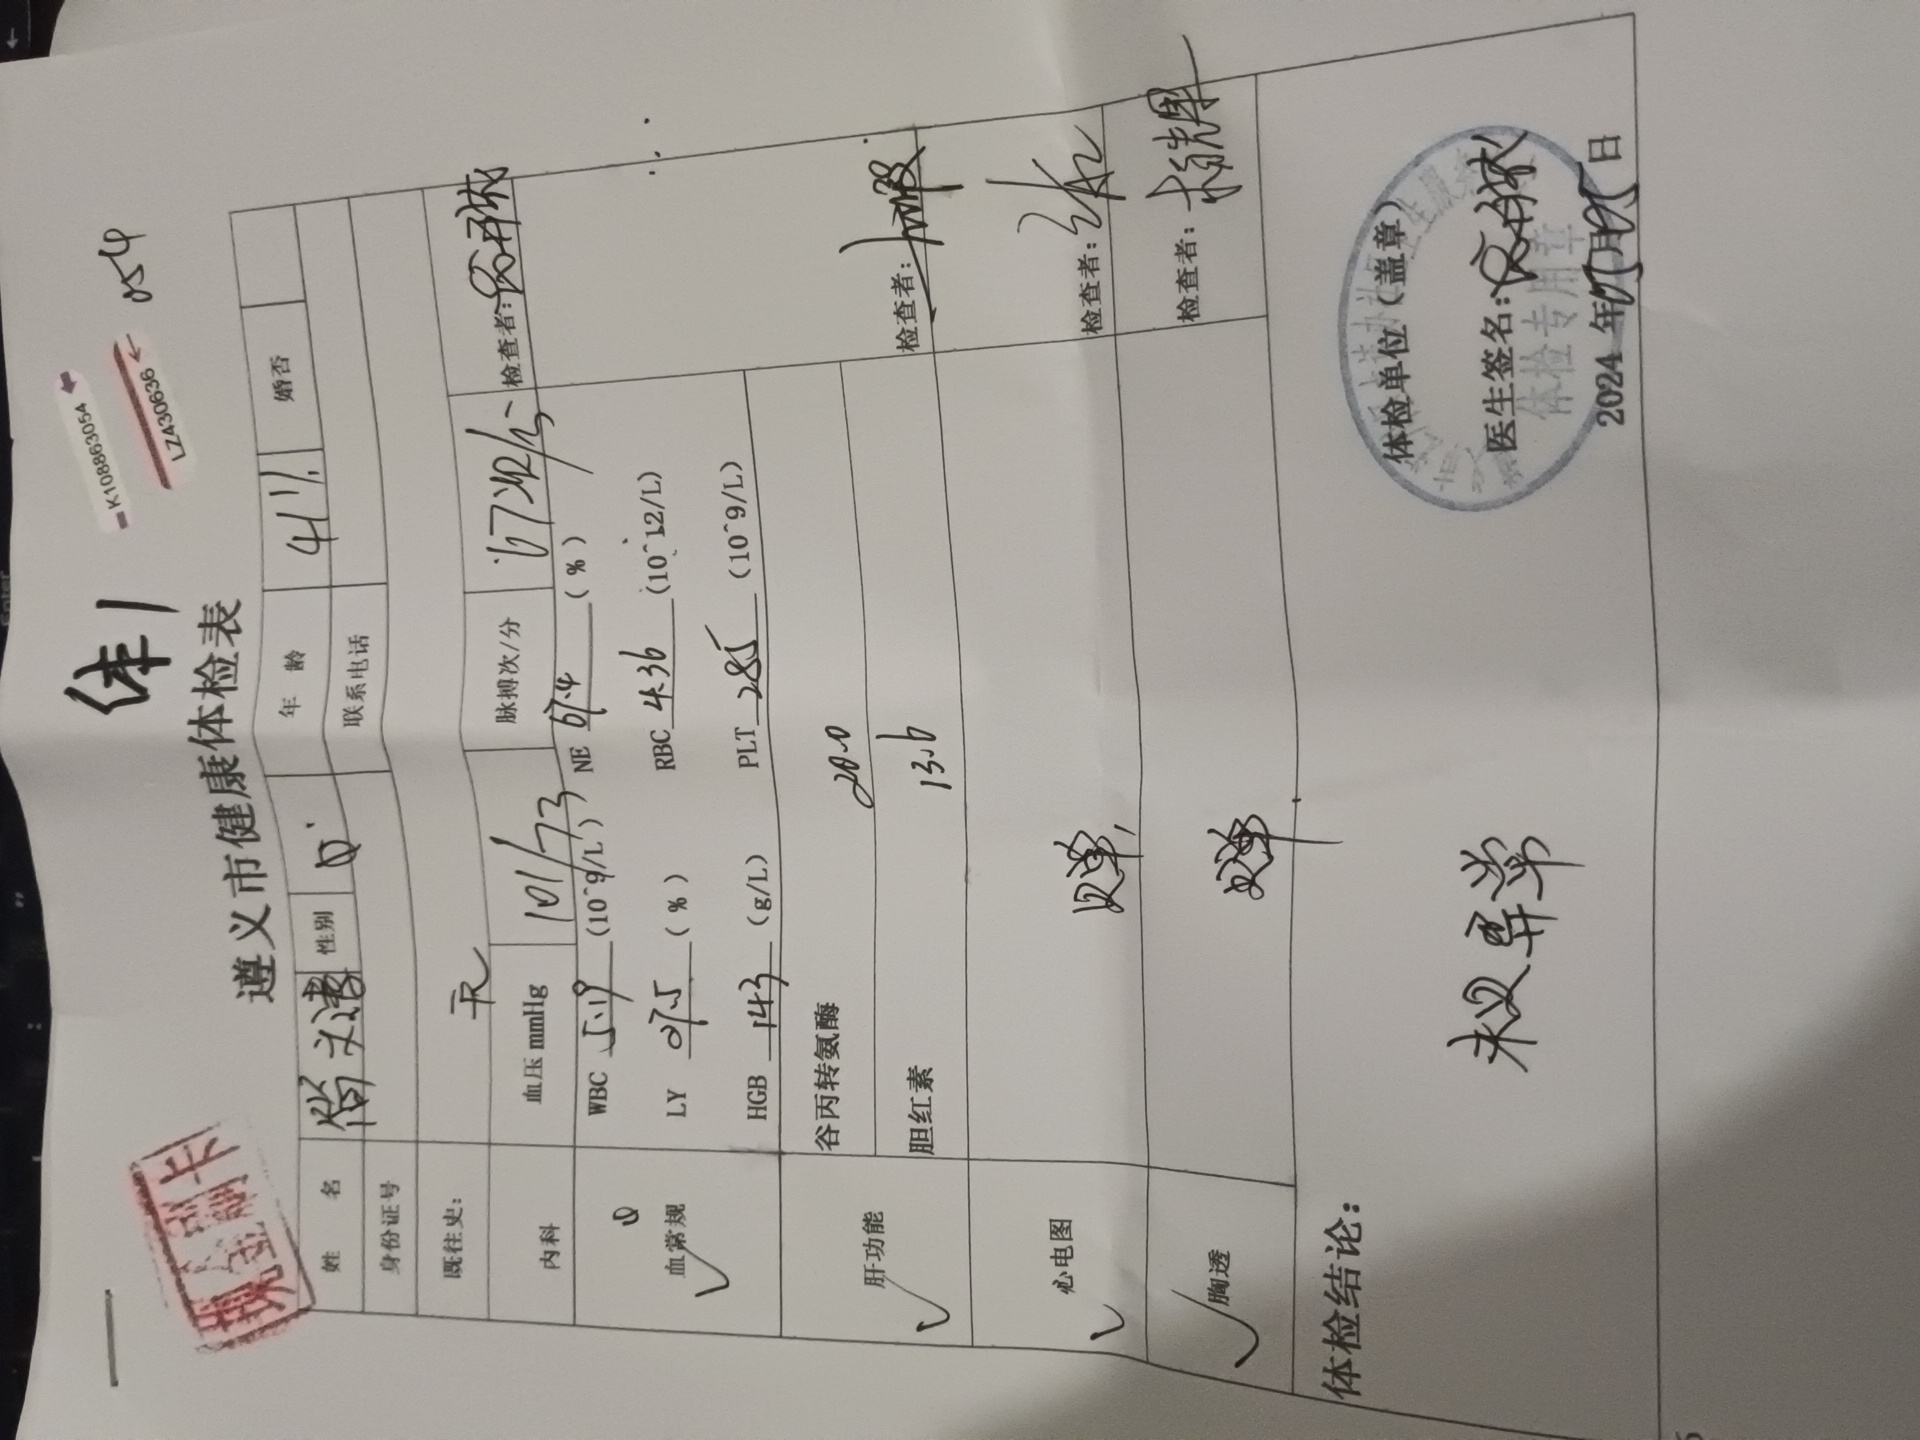 体1
K108863054
LZ430636
054
遵义市健康体检表
姓 名 性别 年 龄 41 婚否
身份证号 联系电话
既往史: 无
内科 血压mmHg 101/73 脉搏次/分 67次/分 检查者:
血常规 WBC 5.19 (10^9/L) NE 67.4 (%)
LY 27.5 (%) RBC 4.36 (10^12/L)
HGB 143 (g/L) PLT 285 (10^9/L)
肝功能 谷丙转氨酶 20.0
胆红素 13.6 检查者:
心电图 检查者:
胸透 检查者:
体检结论:
未见异常
体检单位(盖章)
医生签名:
体检专用章
2024 年 月 日